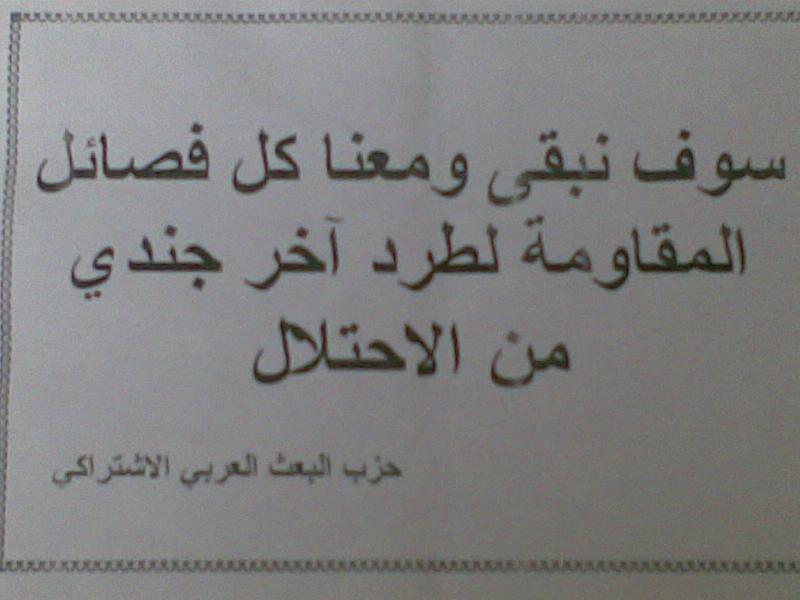 سوف نبقى ومعنا كل فصائل
المقاومة لطرد آخر جندي
من الاحتلال
حزب البعث العربي الاشتراكي